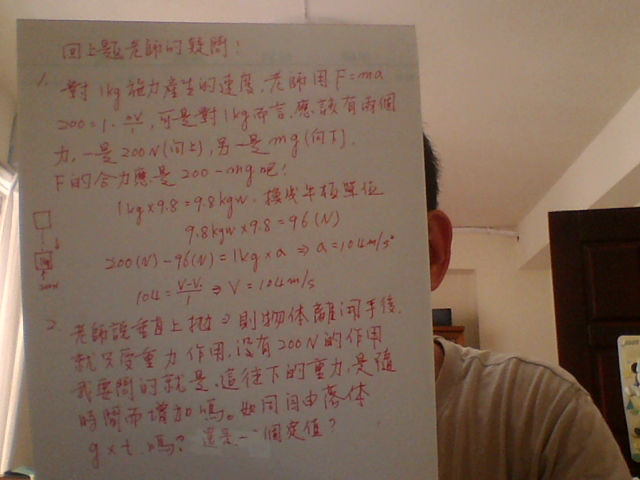 回上題老師的疑問：
1. 對1kg施力產生的速度，老師用F=ma
200=1·ΔV/1，可是對1kg而言，應該有兩個
力，一是200N(向上)，另一是mg(向下)，
F的合力應是200-mg吧！
1kg×9.8=9.8kgw，換成牛頓單位
9.8kgw×9.8=96(N)
200(N)-96(N)=1kg×a ⇒ a=104m/s²
104=V-V₀/1 ⇒ V=104m/s
2. 老師說垂直上拋，則物体離開手後，
就只受重力作用，沒有200N的作用
我要問的就是，這往下的重力，是隨
時間而增加嗎。如同自由落体
g×t 嗎？還是一個定值？